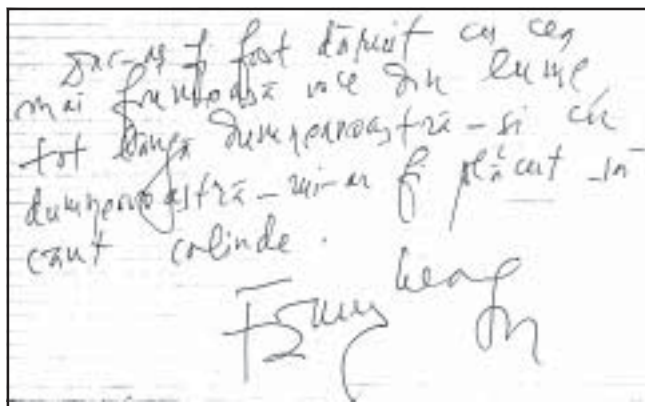 Dac-aș fi fost dăruit cu cea
mai frumoasă voce din lume,
tot lângă dumneavoastră - și cu
dumneavoastră - mi-ar fi plăcut să
cânt colinde.